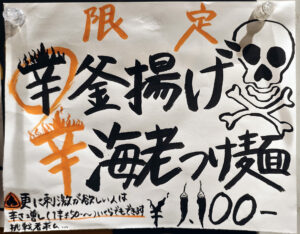 限定
辛釜揚げ
辛海老つけ麺
更に刺激が欲しい人は
辛さ増し(1辛¥50〜)いくらでもできます
挑戦者求ム…
¥1,100-